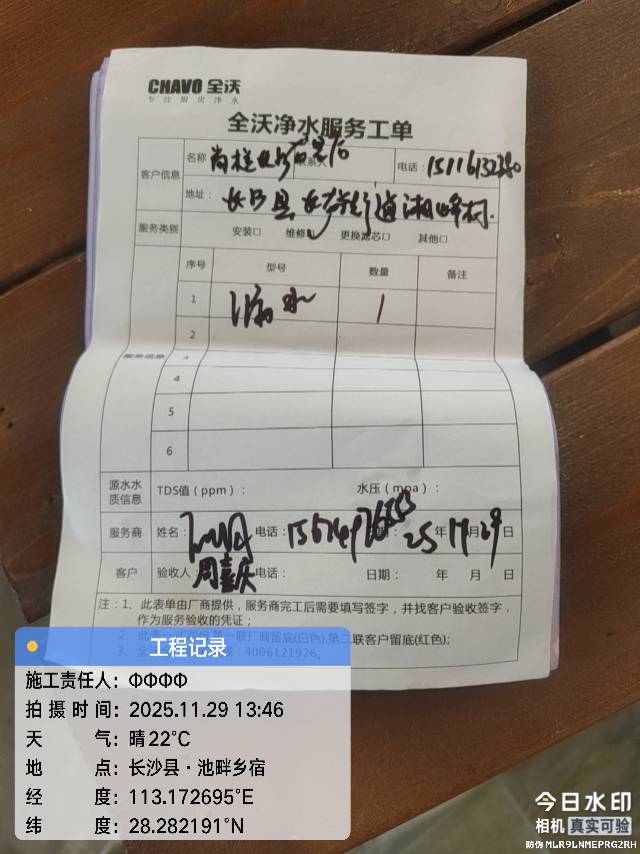 CHAVO 全沃
专注厨房净水
全沃净水服务工单
客户信息
名称
联系人
电话：15116132380
地址：长沙县 湘峰村
服务类别
安装□ 维修 更换滤芯□ 其他□
服务信息
序号 型号 数量 备注
1 漏水 1
2
3
4
5
6
源水水质信息
TDS值（ppm）： 水压（mpa）：
服务商 姓名： 电话： 年 月 29 日
客户 验收人 周喜庆 电话： 日期： 年 月 日
注：1、此表单由厂商提供，服务商完工后需要填写签字，并找客户验收签字，
作为服务验收的凭证；
2、第一联厂商留底(白色),第二联客户留底(红色);
3、4006121926,
工程记录
施工责任人：ФФФФ
拍摄时间：2025.11.29 13:46
天 气：晴22℃
地 点：长沙县·池畔乡宿
经 度：113.172695°E
纬 度：28.282191°N
今日水印
相机 真实可验
防伪 MLR9LNMEPRG2RH